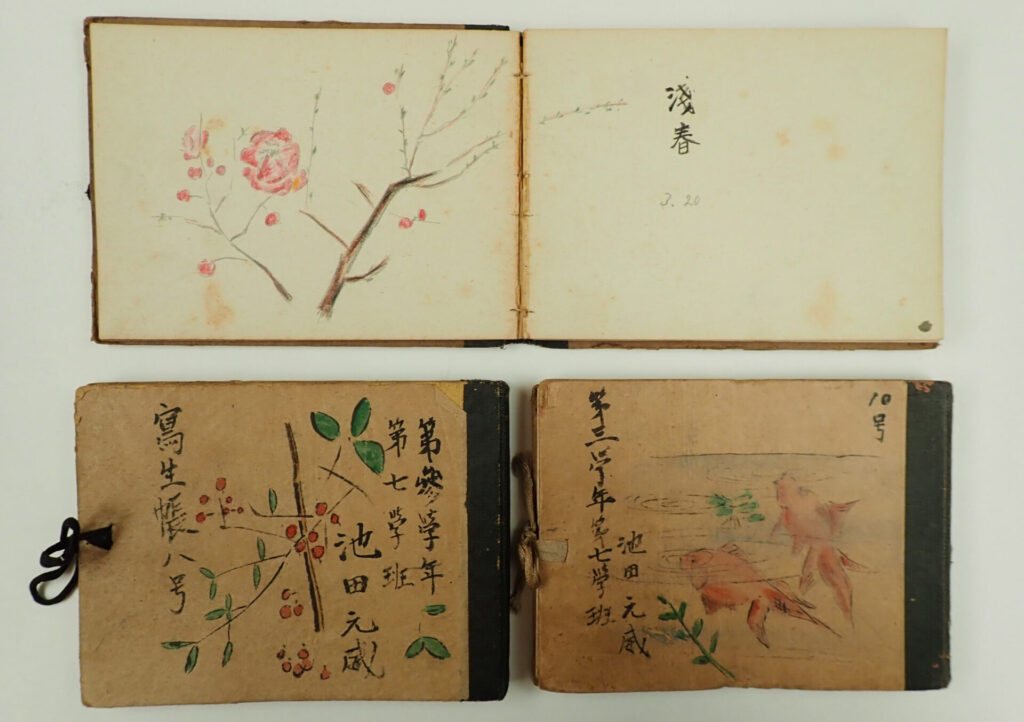 淺春
3.20
第參學年
第七學班
池田元威
寫生帳八号
10号
第三学年第七學班
池田元威